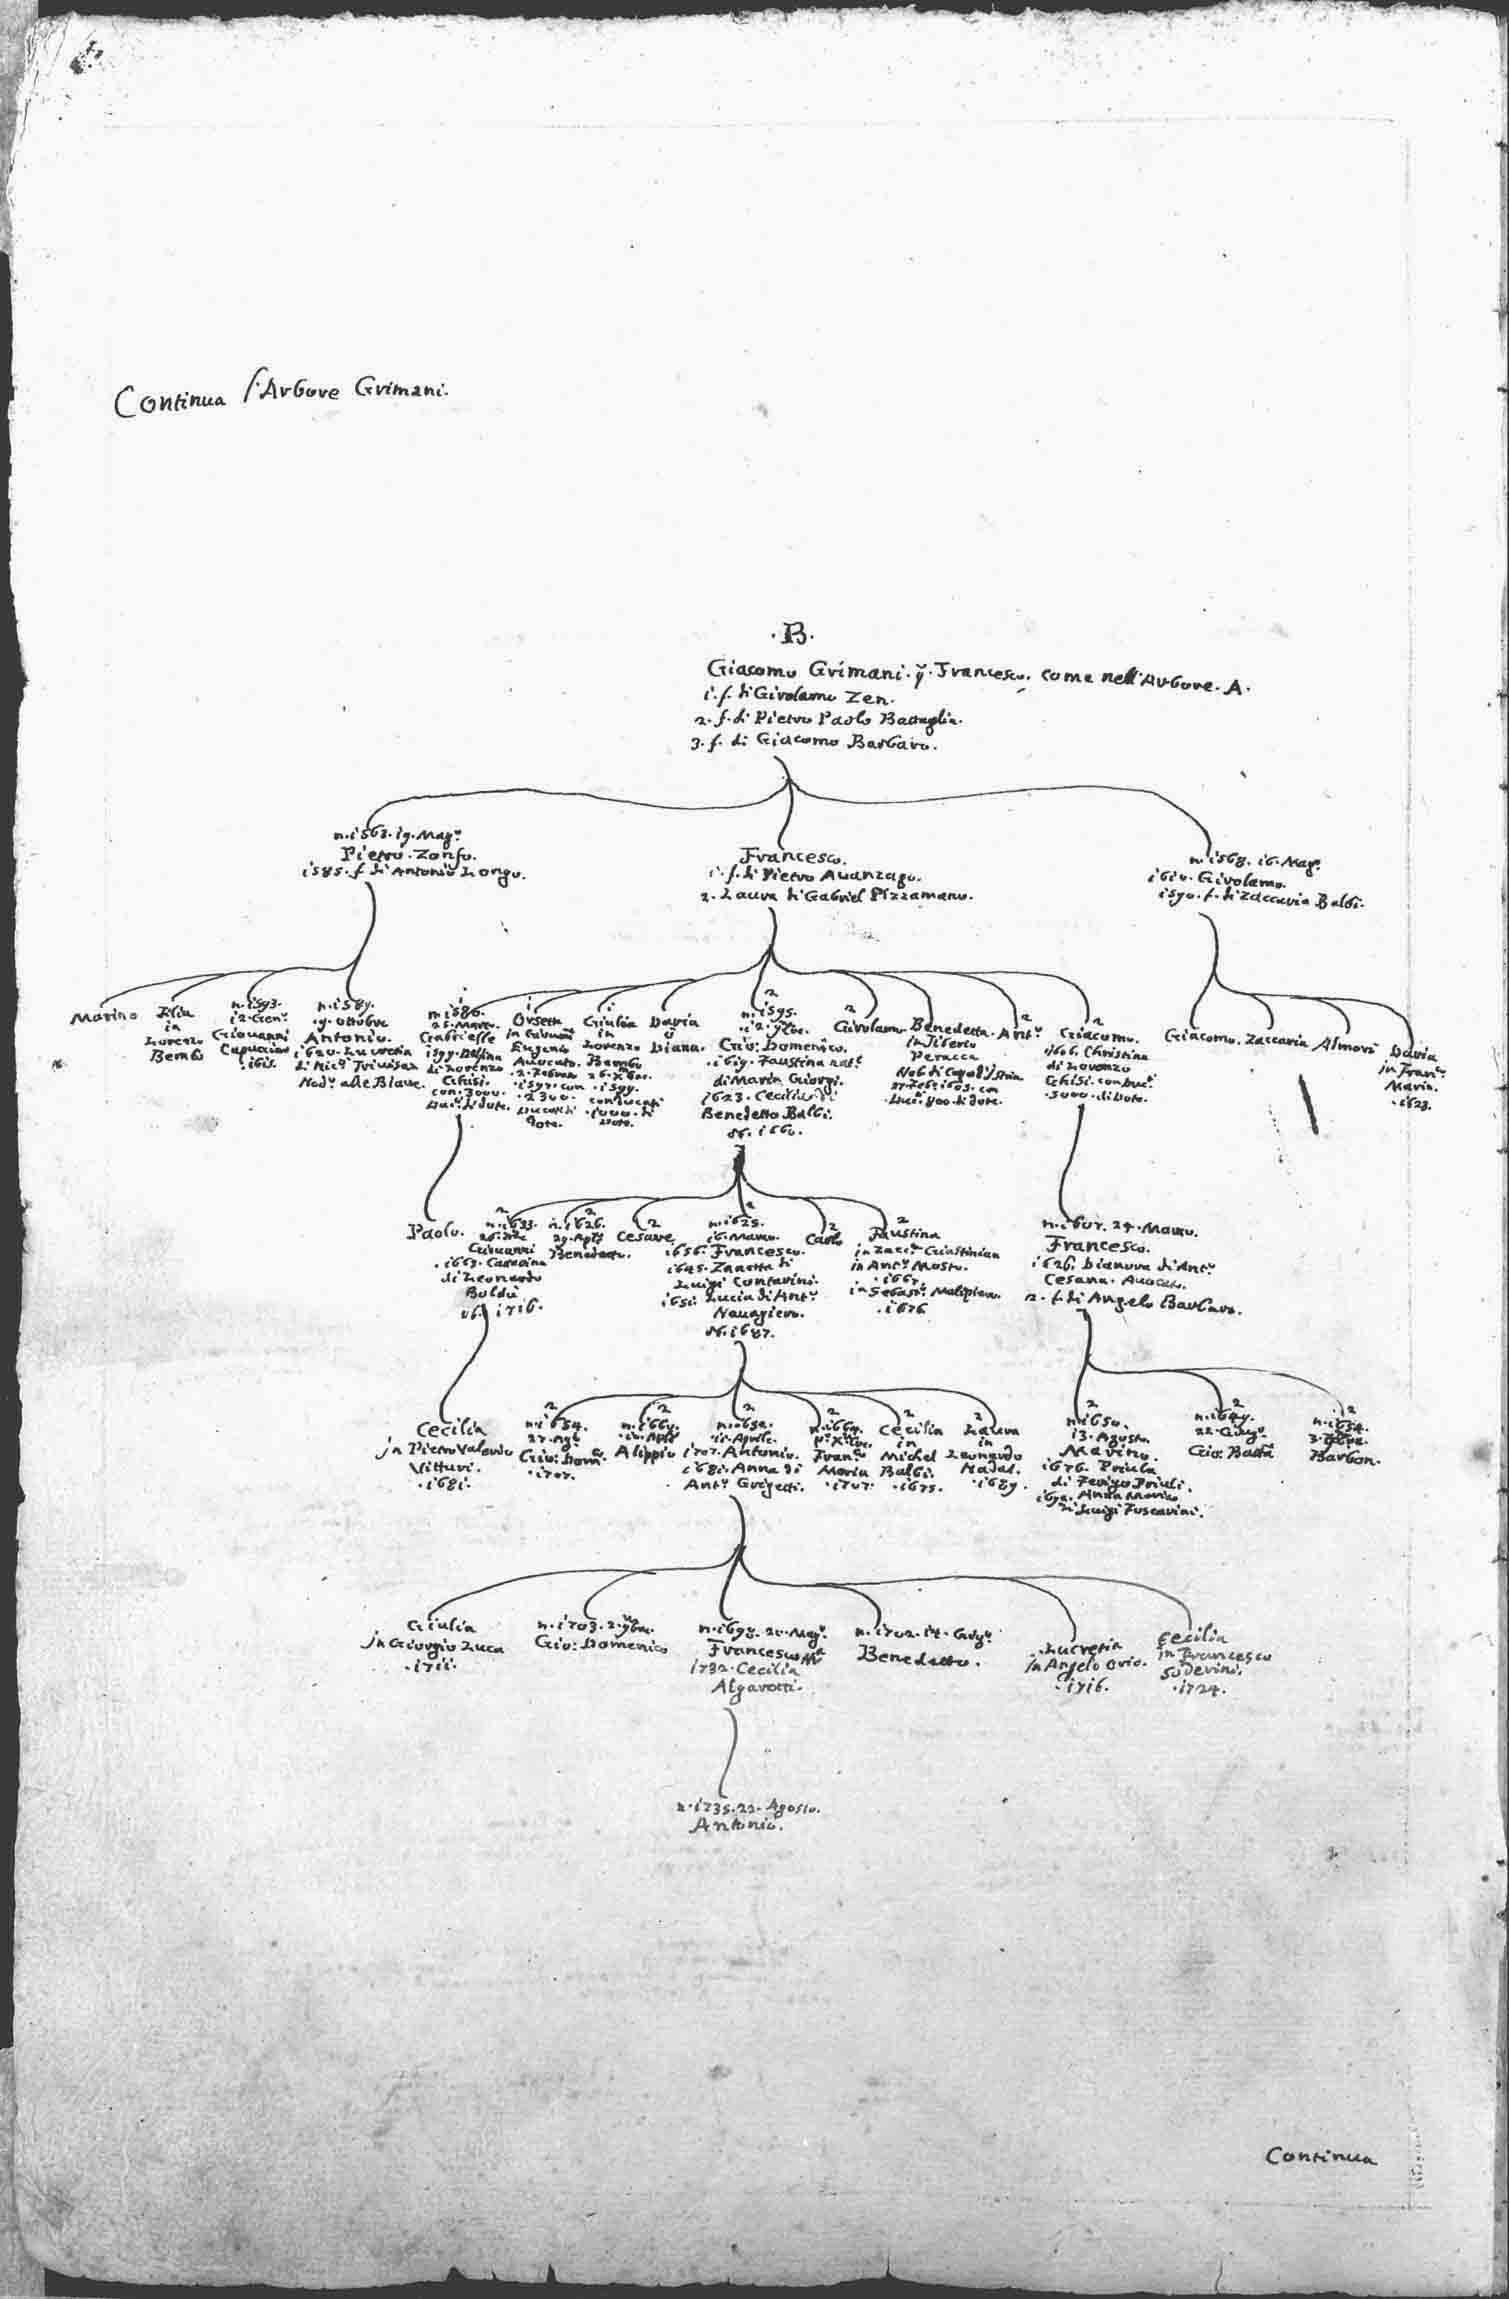 Continua l'Arbore Grimani.
.B.
Giacomo Grimani. q. Francesco. come nell'Arbore. A.
1. f. di Girolamo Zen.
2. f. di Pietro Paolo Battaglia.
3. f. di Giacomo Barbaro.
n. 1563. 19. Mag.o
Pietro. Zonfo.
1585. f. di Antonio Longo.
Francesco.
1. f. di Pietro Avanzago.
2. Laura di Gabriel Pizzamano.
n. 1568. 16. Mag.o
1610. Girolamo.
1590. f. di Zaccaria Balbi.
Marino
Elia
in
Lorenzo
Bembo
n. 1593.
12. Gen.o
Giovanni
Capucino
1615.
n. 1589.
9. ottobre
Antonio.
1620. Lucretia
di Nic.o Trivisan
Nod.o alle Biave.
1
n. 1586.
25. Marzo.
Gabrielle
1599. Dellina
di Lorenzo
Ghisi.
con. 3000.
Duc.ti di dote.
1
Orsetta
in Giovanni
Eugenio
Avocato.
2. Febraro
1597. con
2300.
Ducati di
Dote.
1
Giulia
in
Lorenzo
Bembo
26. Xbre.
1599.
con ducati
1000. di
Dote.
Daria
o
Diana.
2
n. 1595.
12. 7bre.
Gio: Domenico.
1619. Faustina nat.e
di Marin Giorgi.
1623. Cecilia di
Benedetto Balbi.
ob. 1660.
2
Girolamo
Benedetta.
in Tiberio
Peracca
Nob. di Capo d'Istria
27. Feb. 1603. con
Duc.ti 800. di dote.
2
Ant.o
2
Giacomo.
1606. Christina
di Lorenzo
Ghisi. con Duc.ti
5000. di Dote.
Giacomo.
Zaccaria
Almorò
Daria
in Fran.co
Marin.
1623.
Paolo.
2
n. 1633.
Giovanni
1663. Cattarina
di Leonardo
Boldù
ob. 1716.
2
n. 1626.
29. Aple
Benedetto.
2
Cesare
2
n. 1625.
16. Marzo.
1656. Francesco.
1645. Zanetta di
Luigi Contarini.
1651. Lucia di Ant.o
Navagiero.
ob. 1687.
2
Carlo
2
Faustina
in Zacc.a Giustinian
in Ant.o Mosto.
1667.
in Sebast.o Malipiero.
1676.
n. 1607. 24. Marzo.
Francesco.
1626. Dianora di Ant.o
Cesana. Avocato.
2. f. di Angelo Barbaro.
Cecilia
in Pietro Valerio
Vitturi.
1681.
2
n. 1654.
27. Ag.o
Gio: Dom.co
1707.
2
Alippio
2
n. 1652.
11. Aprile.
1707. Antonio.
1681. Anna di
Ant.o Grigetti.
2
Fran.co
Maria
1707.
2
Cecilia
in
Michel
Balbi.
1675.
2
Laura
in
Leonardo
Nadal.
1689.
2
n. 1650.
13. Agosto.
Marino.
1676. Priula
di Ferigo Priuli.
1692. Anna Maria
di Luigi Foscarini.
2
n. 1649.
22. Giugo.
Gio: Batta
2
n. 1654.
Barbon.
Giulia
in Giorgio Luca
1711.
n. 1703. 2. 9bre.
Gio: Domenico
n. 1698. 20. Mag.o
Francesco M.a
1732. Cecilia
Algarotti.
n. 1702. 14. Giug.o
Benedetto.
Lucretia
in Angelo Orio.
1716.
Cecilia
in Francesco
Soderini.
1724.
n. 1735. 22. Agosto.
Antonio.
Continua